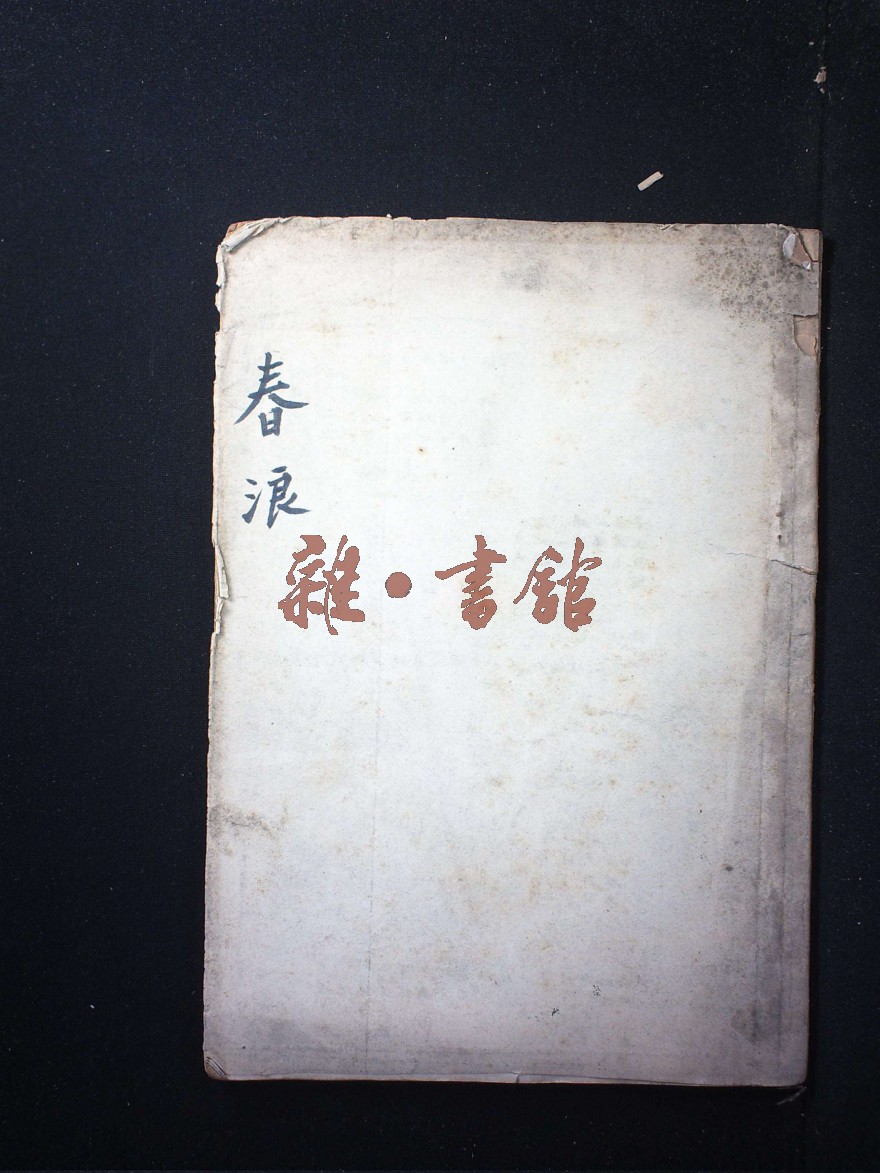 春浪
雜·書館